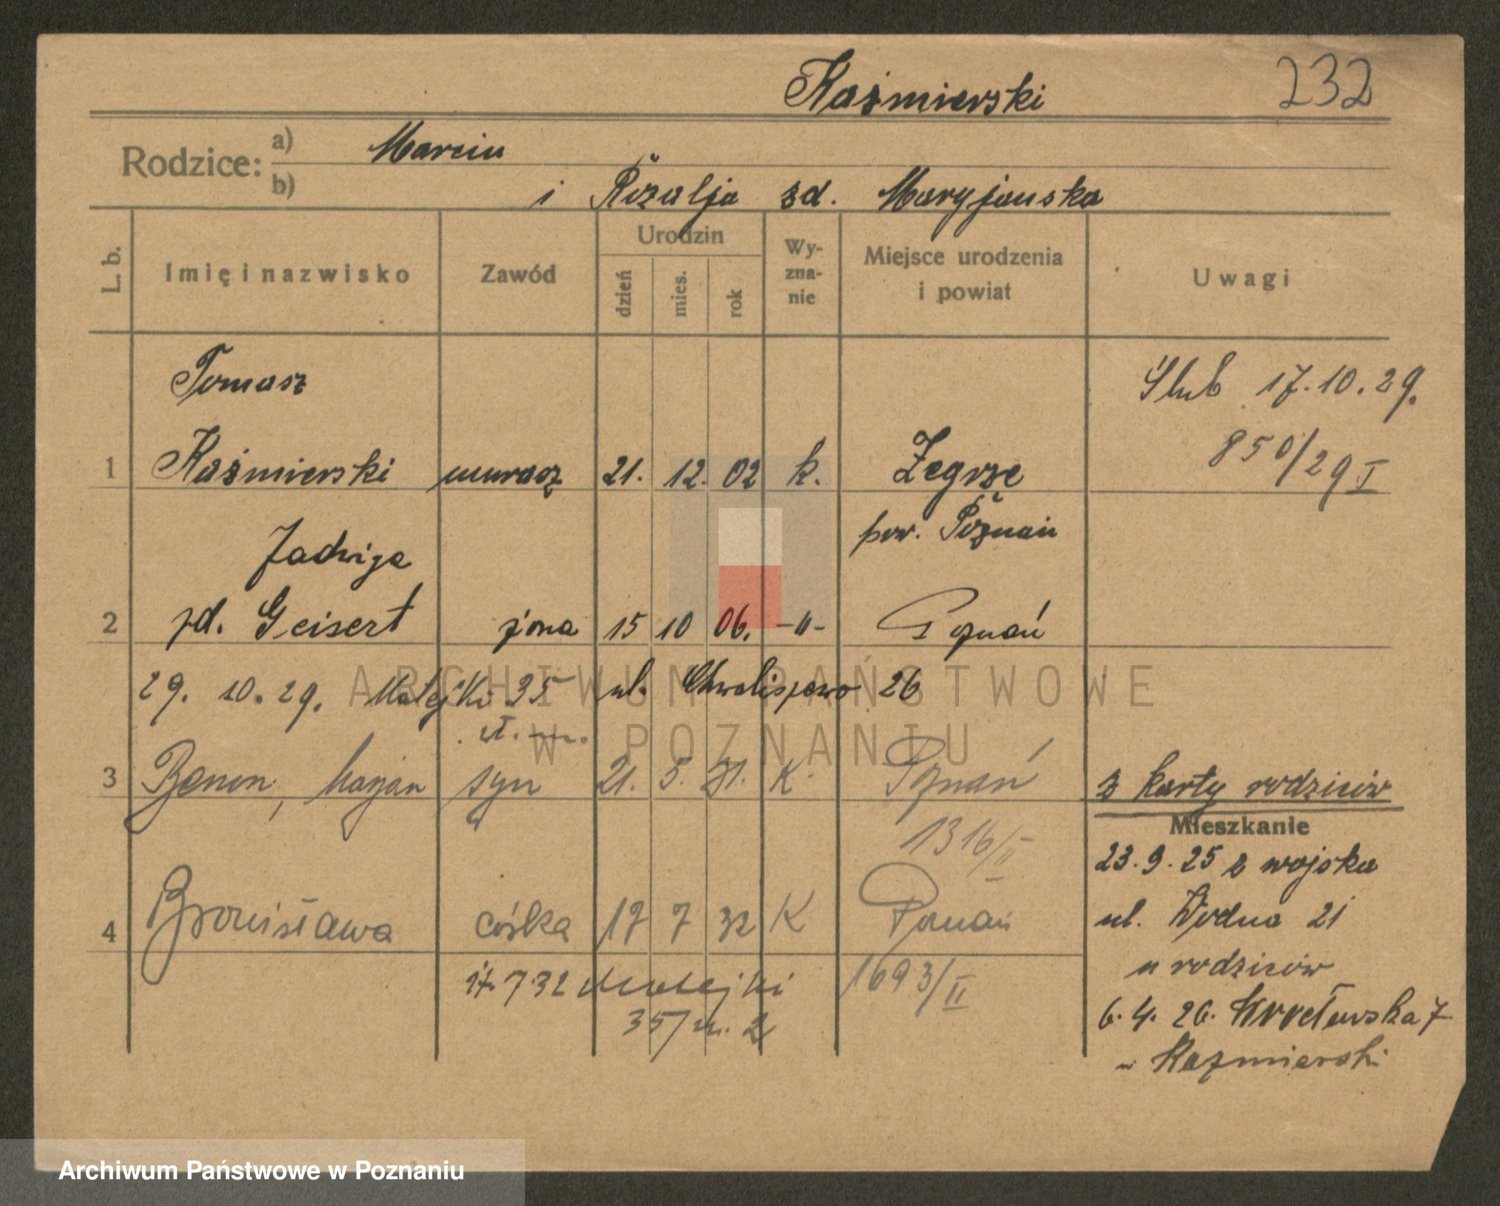 Kaźmierski 232
Rodzice: a) Marcin
b) i Rozalja zd. Maryjańska
L. b. Imię i nazwisko Zawód Urodzin dzień mies. rok Wy-zna-nie Miejsce urodzenia i powiat Uwagi
Tomasz
Ślub 17.10.29.
850/29 I
1 Kaźmierski murarz 21. 12. 02 k. Zegrze
pow. Poznań
Jadwiga
2 zd. Geisert żona 15 10 06. -"- Poznań
29. 10. 29. Matejki 35 ul. Chwaliszewo 26
3 Benon, Marjan syn 21. 5. 31. K. Poznań
z karty rodziców
1316/II
Mieszkanie
23.9.25 z wojska
4 Bronisława córka 17 7 32 K Poznań
ul. Wodna 21
u rodziców
17.7.32 Matejki 1693/II
35/m. 2
6. 4. 26. Wrocławska 7
u Kaźmierski
ARCHIWUM PAŃSTWOWE
W POZNANIU
Archiwum Państwowe w Poznaniu